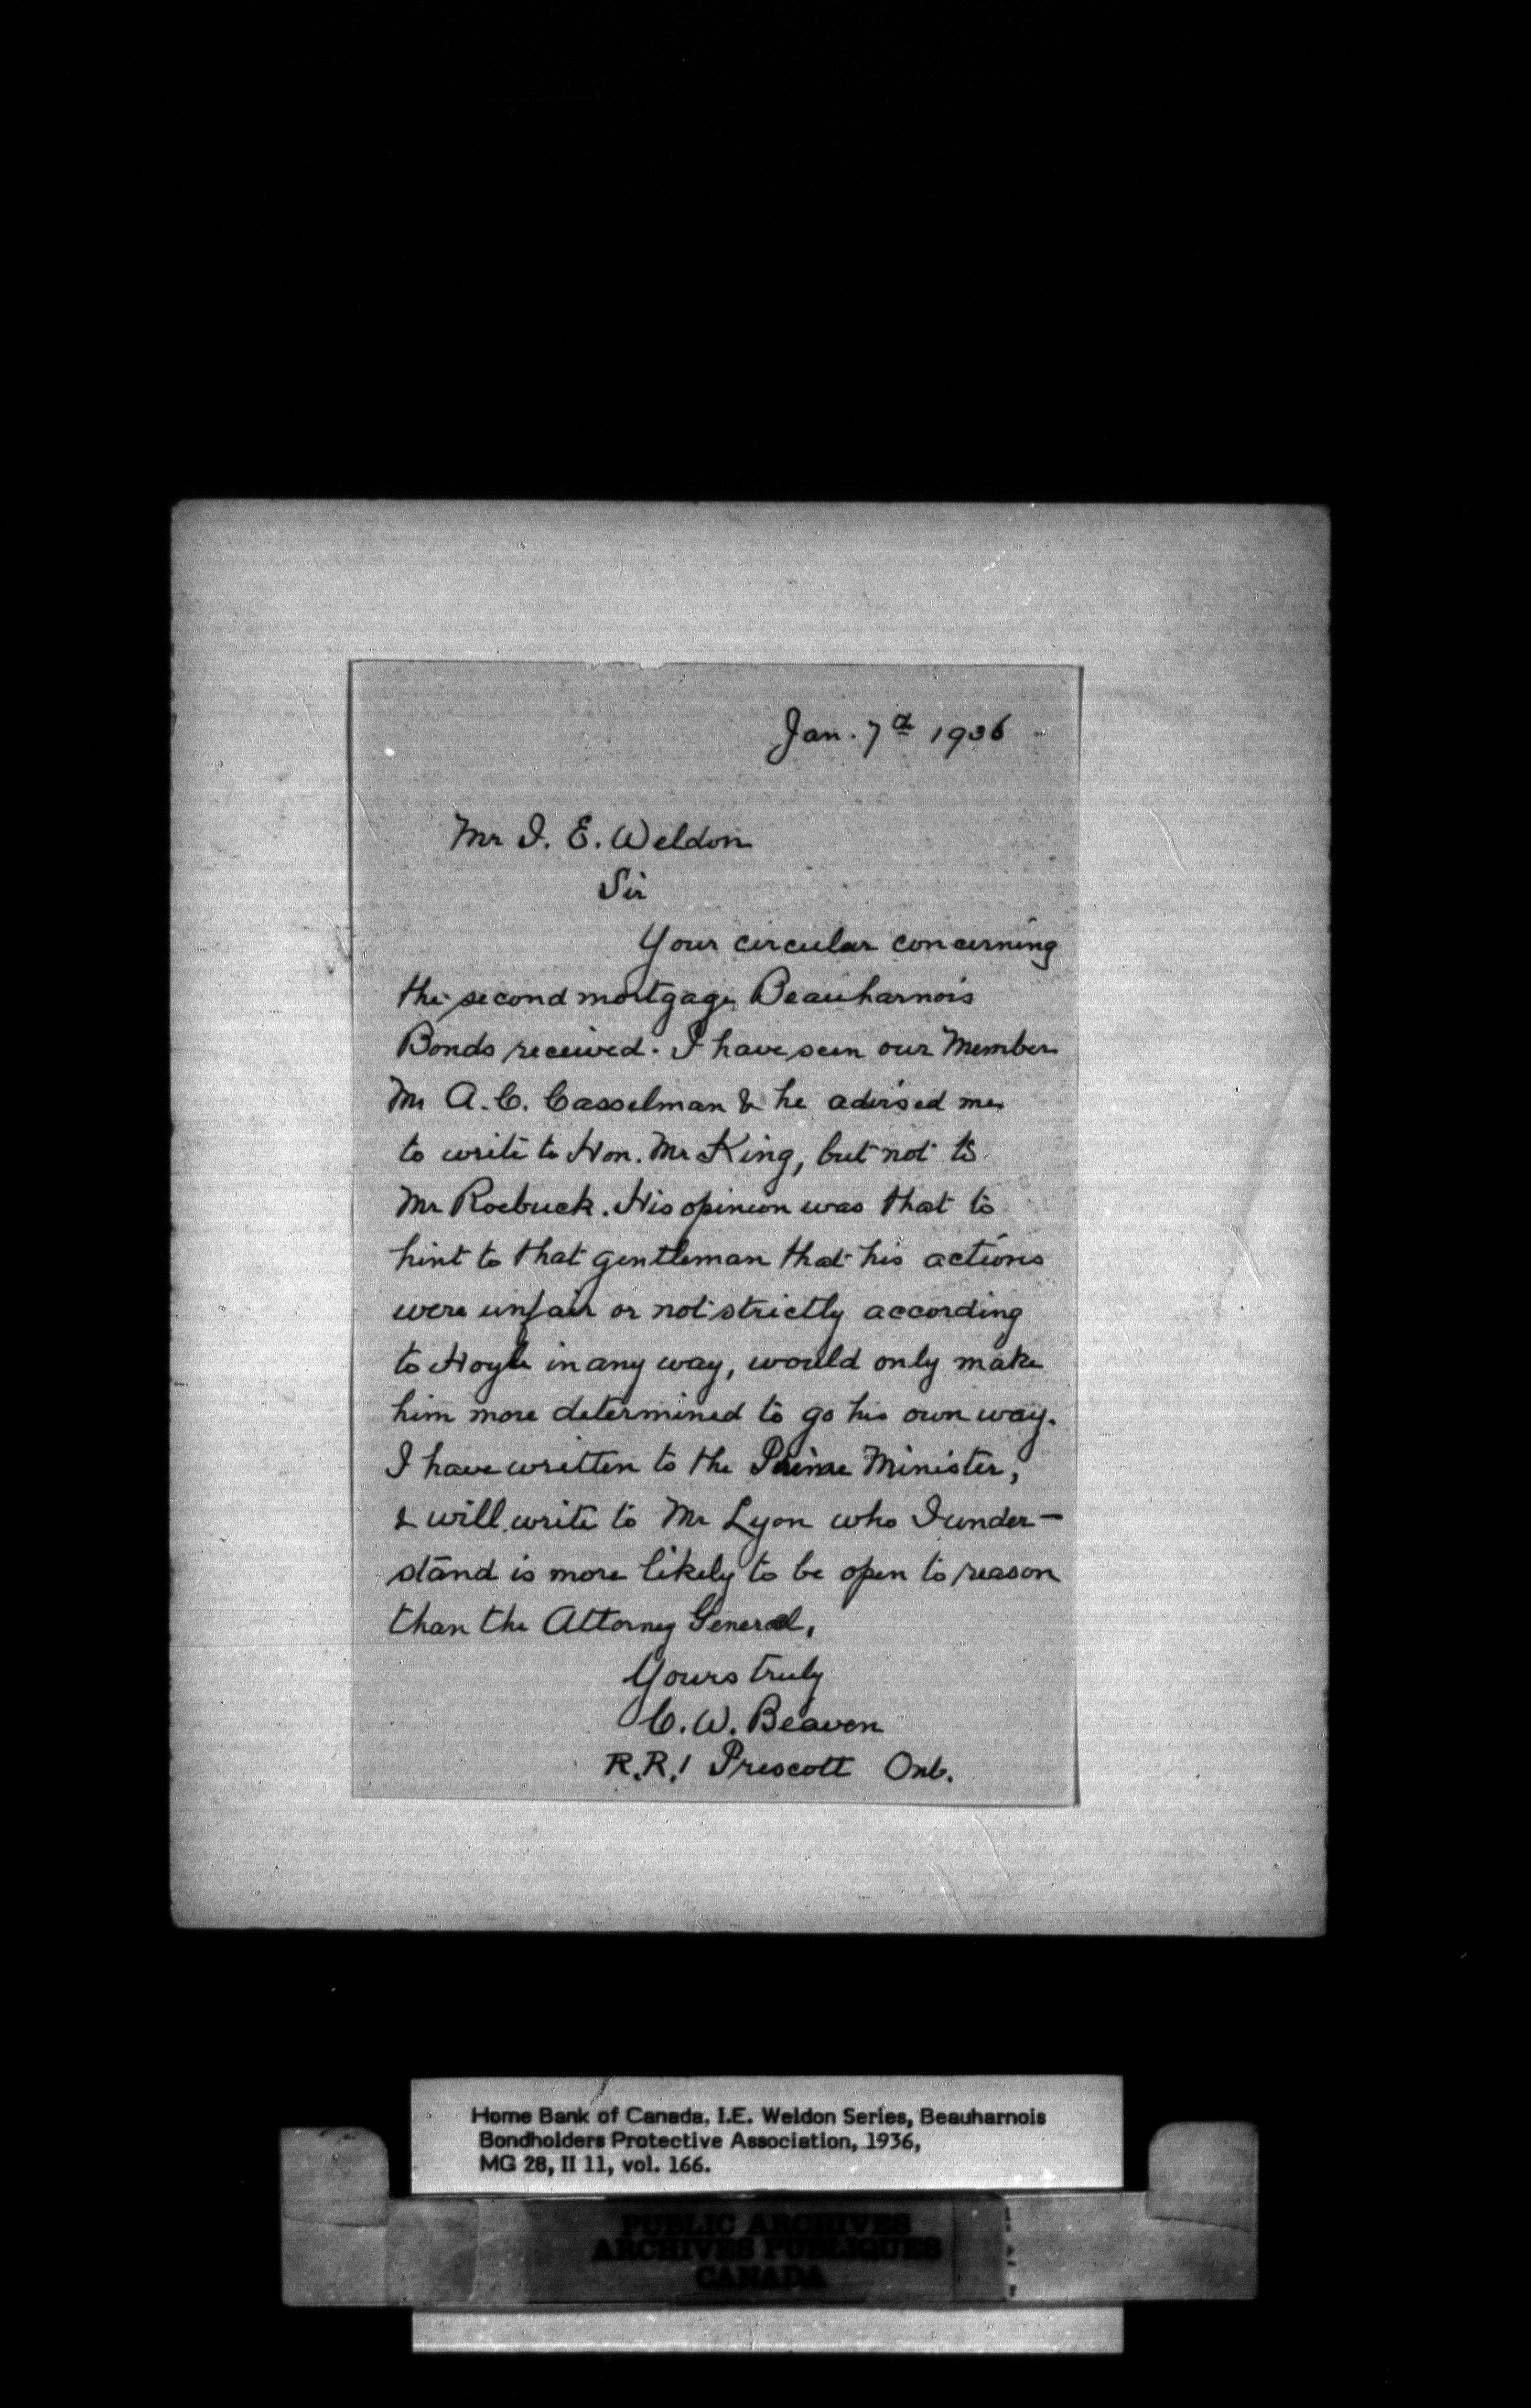 Jan. 7th 1936
Mr I. E. Weldon
Sir
Your circular concerning
the second mortgage Beauharnois
Bonds received. I have seen our Member
Mr A. C. Casselman & he advised me
to write to Hon. Mr King, but not to
Mr Roebuck. His opinion was that to
hint to that gentleman that his actions
were unfair or not strictly according
to Hoyle in any way, would only make
him more determined to go his own way.
I have written to the Prime Minister,
& will write to Mr Lyon who I under-
stand is more likely to be open to reason
than the Attorney General,
Yours truly
C. W. Beaven
R.R.1 Prescott Ont.
Home Bank of Canada, I.E. Weldon Series, Beauharnois
Bondholders Protective Association, 1936,
MG 28, II 11, vol. 166.
PUBLIC ARCHIVES
ARCHIVES PUBLIQUES
CANADA